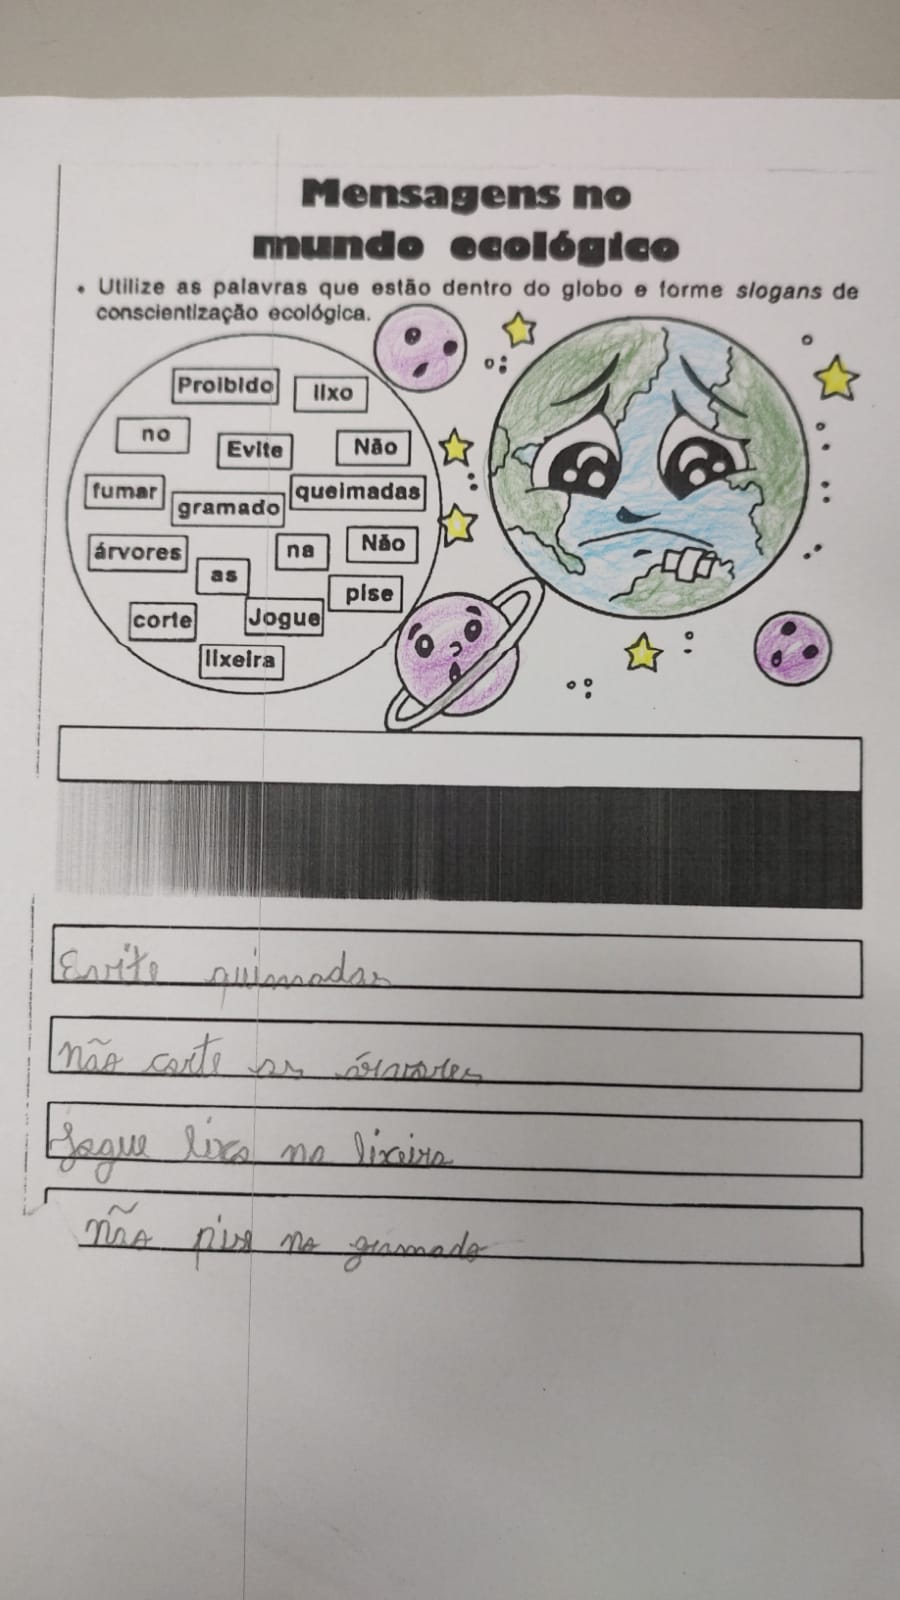 Mensagens no
mundo ecológico
• Utilize as palavras que estão dentro do globo e forme slogans de
conscientização ecológica.
Proibido lixo
no Evite Não
fumar gramado queimadas
árvores na Não
as pise
corte Jogue
lixeira
Evite quimadas
não corte as árvores
Jogue lixo na lixeira
não pise no gramado